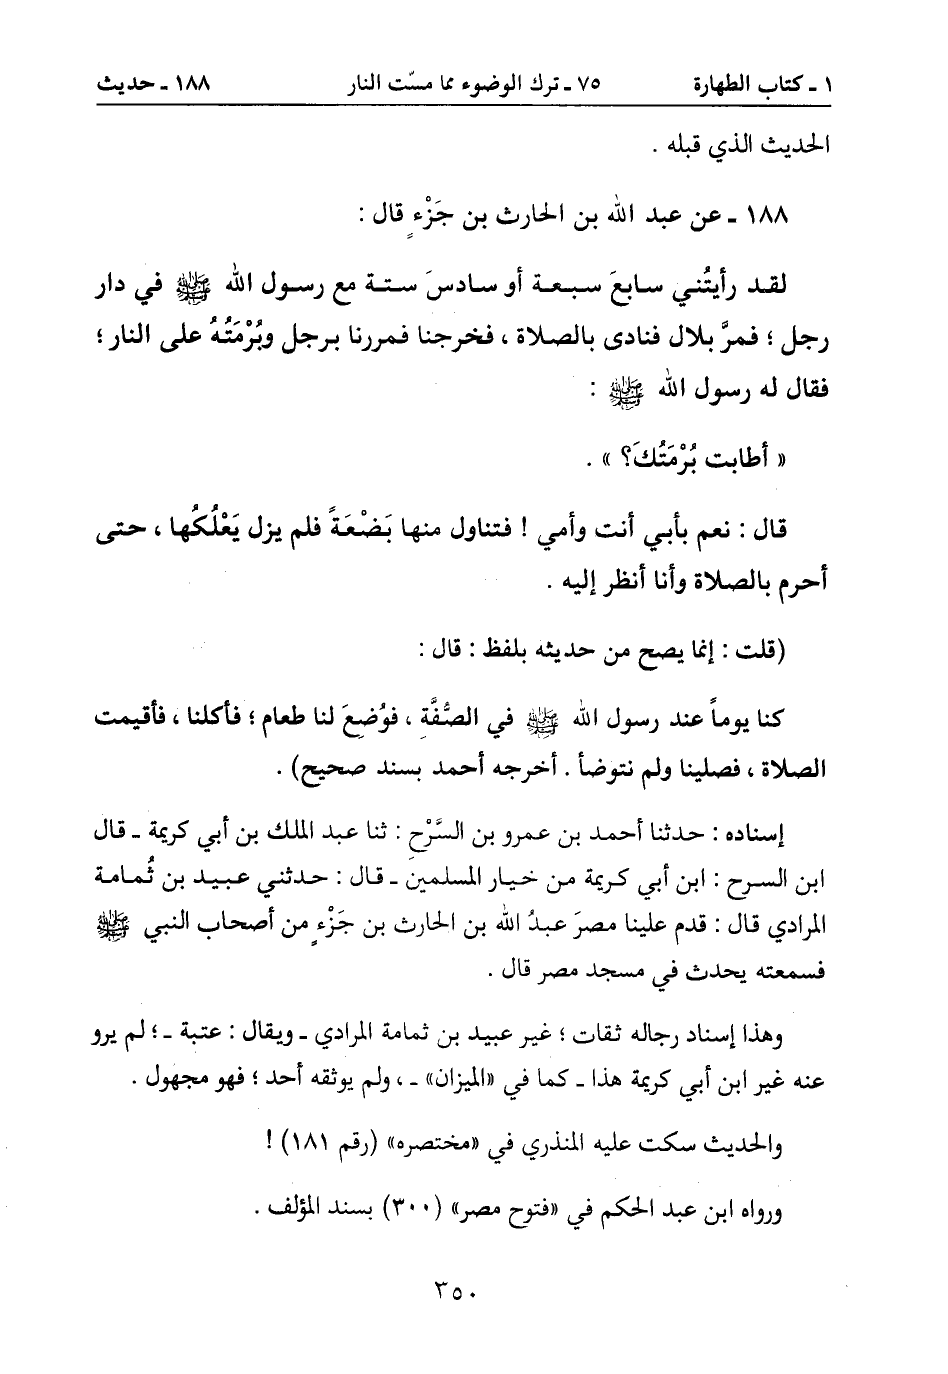 ١ ـ كتاب الطهارة ٧٥ ـ ترك الوضوء مما مسّت النار ١٨٨ ـ حديث
الحديث الذي قبله .
١٨٨ ـ عن عبد الله بن الحارث بن جَزْءٍ قال :
لقد رأيتُني سابعَ سبعة أو سادسَ ستة مع رسول الله ﷺ في دار
رجل ؛ فمرَّ بلال فنادى بالصلاة ، فخرجنا فمررنا برجل وبُرْمَتُهُ على النار ؛
فقال له رسول الله ﷺ :
« أطابت بُرْمَتُكَ؟ » .
قال : نعم بأبي أنت وأمي ! فتناول منها بَضْعَةً فلم يزل يَعْلُكُها ، حتى
أحرم بالصلاة وأنا أنظر إليه .
(قلت : إنما يصح من حديثه بلفظ : قال :
كنا يوماً عند رسول الله ﷺ في الصُّفَّةِ ، فوُضِعَ لنا طعام ؛ فأكلنا ، فأقيمت
الصلاة ، فصلينا ولم نتوضأ . أخرجه أحمد بسند صحيح) .
إسناده : حدثنا أحمد بن عمرو بن السَّرْحِ : ثنا عبد الملك بن أبي كريمة ـ قال
ابن السرح : ابن أبي كريمة من خيار المسلمين ـ قال : حدثني عبيد بن ثُمامة
المرادي قال : قدم علينا مصرَ عبدُ الله بن الحارث بن جَزْءٍ من أصحاب النبي ﷺ
فسمعته يحدث في مسجد مصر قال .
وهذا إسناد رجاله ثقات ؛ غير عبيد بن ثمامة المرادي ـ ويقال : عتبة ـ ؛ لم يرو
عنه غير ابن أبي كريمة هذا ـ كما في «الميزان» ـ ، ولم يوثقه أحد ؛ فهو مجهول .
والحديث سكت عليه المنذري في «مختصره» (رقم ١٨١) !
ورواه ابن عبد الحكم في «فتوح مصر» (٣٠٠) بسند المؤلف .
٣٥٠